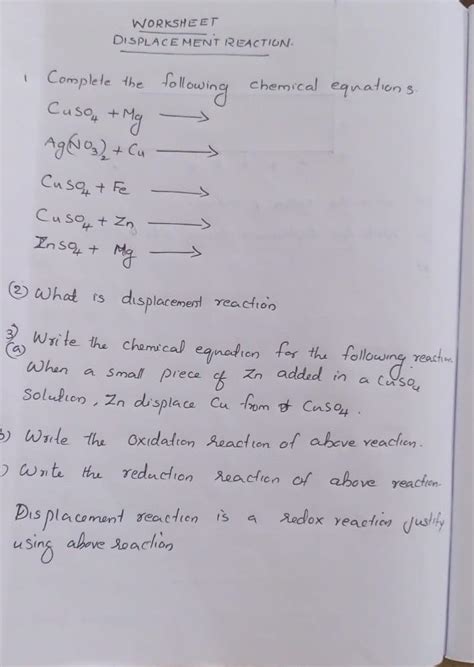 WORKSHEET
DISPLACEMENT REACTION.
1 Complete the following chemical equations.
CuSO4 + Mg ⟶
Ag(NO3)2 + Cu ⟶
CuSO4 + Fe ⟶
CuSO4 + Zn ⟶
ZnSO4 + Mg ⟶
(2) What is displacement reaction
3)
(a) Write the chemical equation for the following reaction
When a small piece of Zn added in a CuSO4
Solution, Zn displace Cu from CuSO4.
b) Write the oxidation reaction of above reaction.
) Write the reduction reaction of above reaction.
Displacement reaction is a redox reaction justify
using above reaction